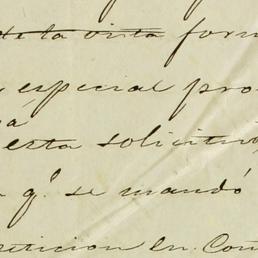 de la vista form
especial pro
á
esta solicitu
q.e se mandó
peticion en Con